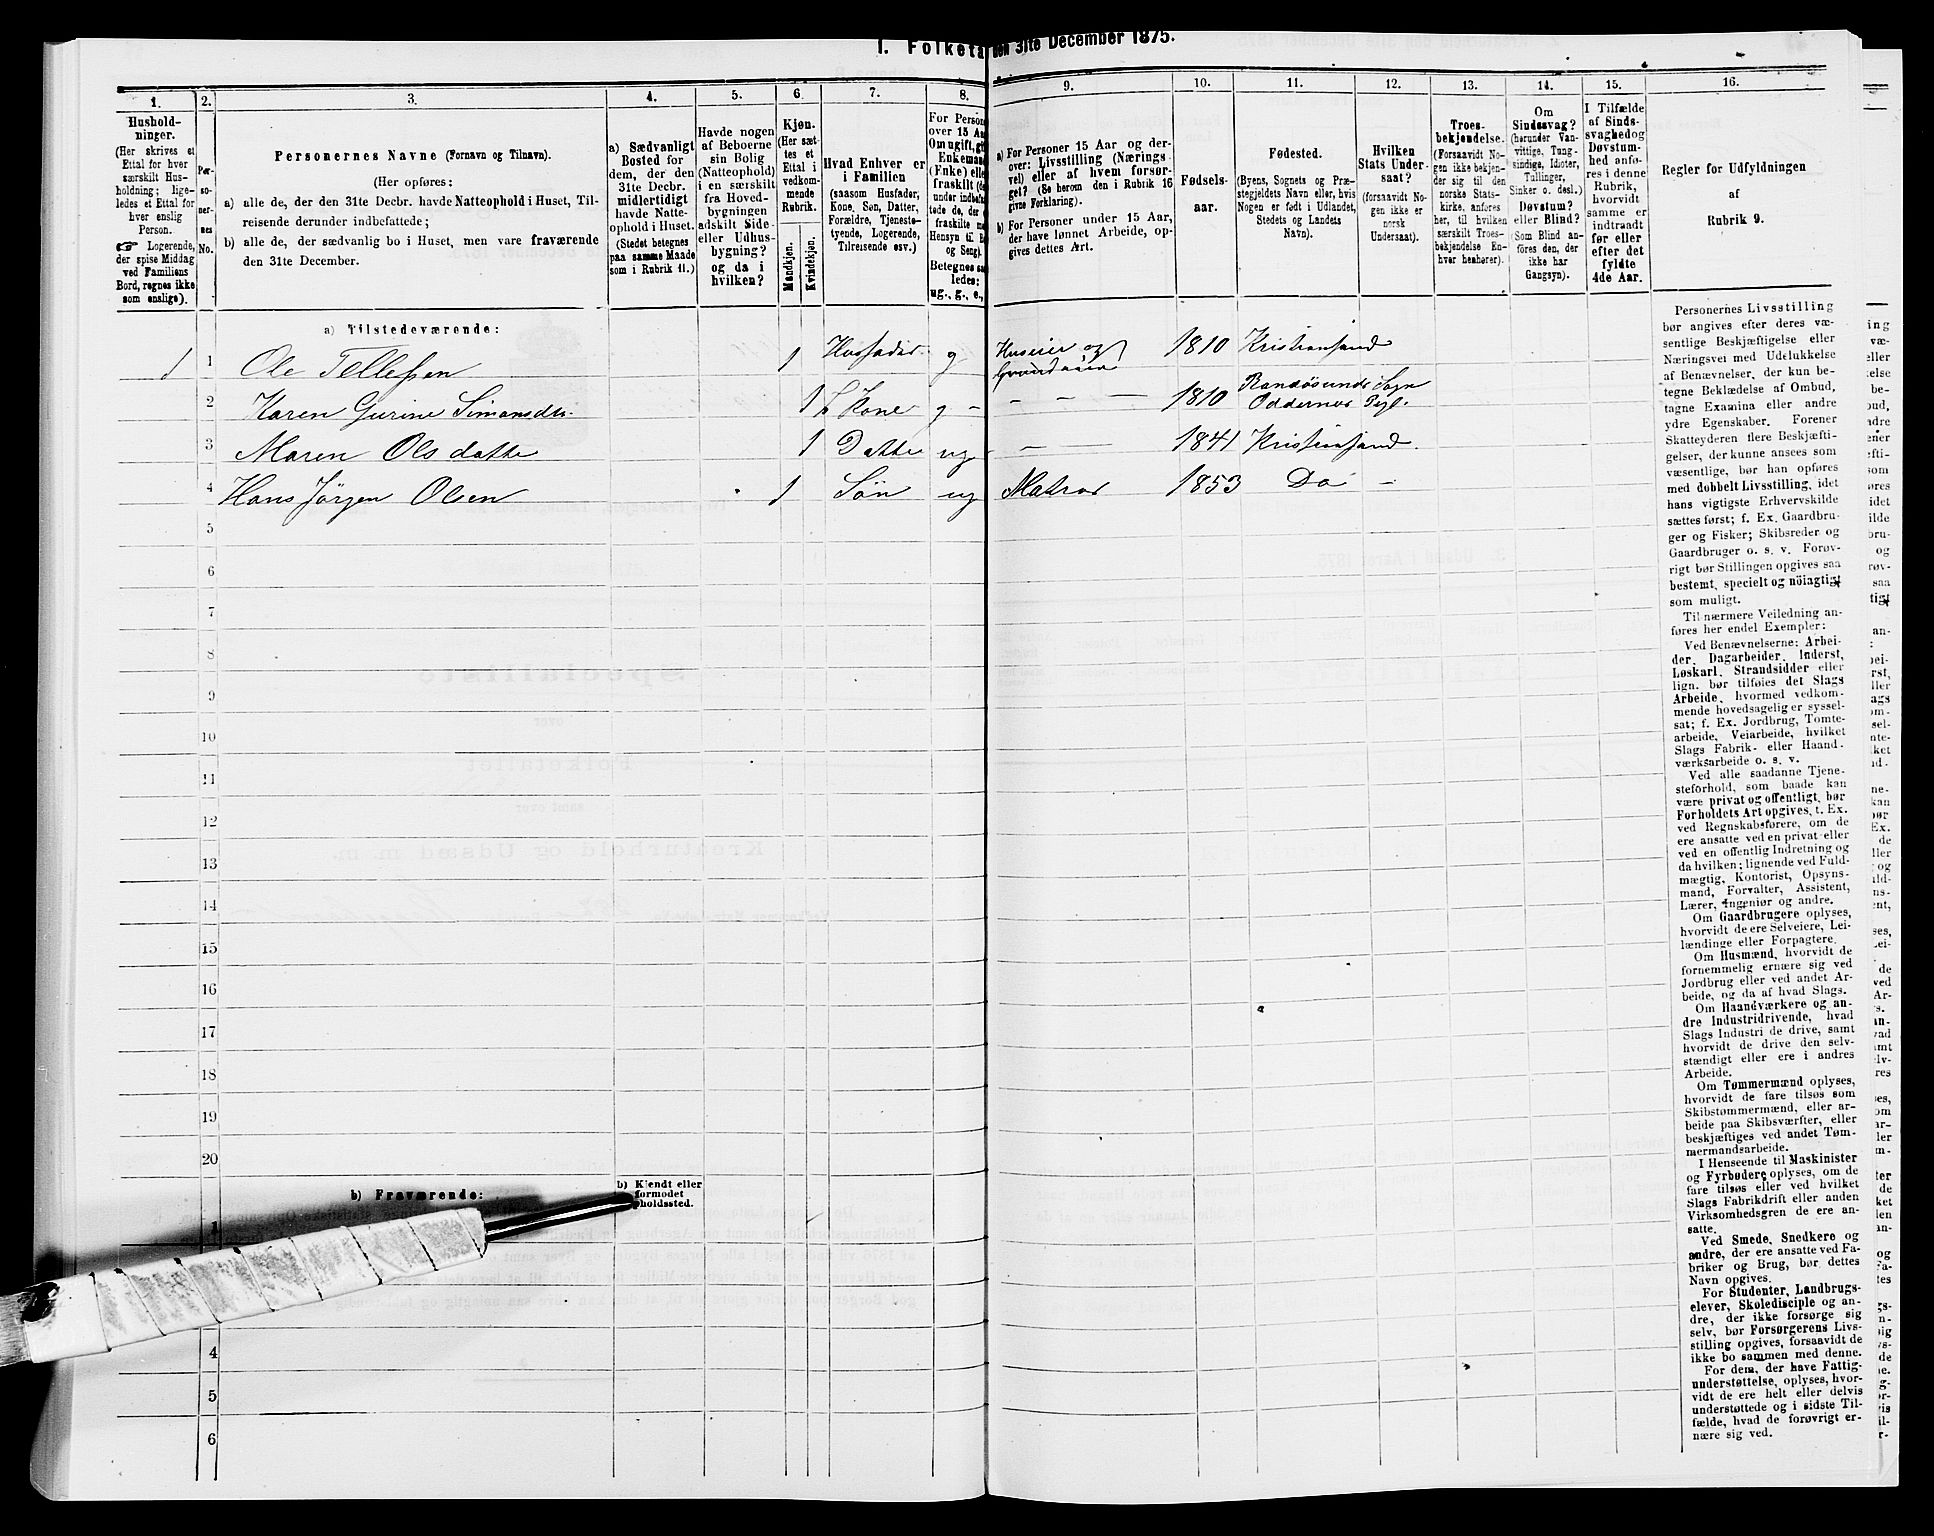 I. Folketa
den 31te December 1875.
1.
2.
3.
4.
5.
6.
7.
8.
9.
10.
11.
12.
13.
14.
15.
16.
Hushold-
ninger.
(Her skrives et
Ettal for hver
særskilt Hus-
holdning; lige-
ledes et Ettal for
hver enslig
Person.
☞ Logerende,
der spise Middag
ved Familiens
Bord, regnes ikke
som enslige).
Per-
so-
ner-
nes
No.
Personernes Navne (Fornavn og Tilnavn).
(Her opføres:
a) alle de, der den 31te Decbr. havde Natteophold i Huset, Til-
reisende derunder indbefattede;
b) alle de, der sædvanlig bo i Huset, men vare fraværende
den 31te December.
a) Sædvanligt
Bosted for
dem, der den
31te Decbr.
midlertidigt
havde Natte-
ophold i Huset.
(Stedet betegnes
paa samme Maade
som i Rubrik 11.)
Havde nogen
af Beboerne
sin Bolig
(Natteophold)
i en særskilt
fra Hoved-
bygningen
adskilt Side-
eller Udhus-
bygning?
og da i
hvilken?
Kjøn.
(Her sæt-
tes et
Ettal i
vedkom-
mende
Rubrik.
Mandkjøn.
Kvindekjøn.
Hvad Enhver er
i Familien
(saasom Husfader,
Kone, Søn, Datter,
Forældre, Tjeneste-
tyende, Logerende,
Tilreisende osv.)
For Person
over 15 Aa
Om ugift, gi
Enkemand
(Enke) elle
fraskilt (de
under indbef
tede de, der
fraskilte m
Hensyn til B
og Seng).
Betegnes saa
ledes:
ug., g., e.,
a) For Personer 15 Aar og der-
over: Livsstilling (Nærings-
vei) eller af hvem forsør-
get? (Se herom den i Rubrik 16
givne Forklaring).
b) For Personer under 15 Aar,
der have lønnet Arbeide, op-
gives dettes Art.
Fødsels-
aar.
Fødested.
(Byens, Sognets og Præ-
stegjeldets Navn eller, hvis
Nogen er født i Udlandet,
Stedets og Landets
Navn).
Hvilken
Stats Under-
saat?
(forsaavidt No-
gen ikke er
norsk
Undersaat).
Troes-
bekjendelse.
(Forsaavidt No-
gen ikke beken-
der sig til den
norske Stats-
kirke, anføres
her, til hvilken
særskilt Troes-
bekjendelse En-
hver henhører).
Om
Sindssvag?
(herunder Van-
vittige, Tung-
sindige, Idioter,
Tullinger,
Sinker o. desl.)
Døvstum?
eller Blind?
(Som Blind an-
føres den, der
ikke har
Gangsyn).
I Tilfælde
af Sinds-
svaghed og
Døvstum-
hed anfø-
res i denne
Rubrik,
hvorvidt
samme er
indtraadt
før eller
efter det
fyldte
4de Aar.
Regler for Udfyldningen
af
Rubrik 9.
a) Tilstedeværende:
1 1 Ole Tellefsen 1 Husfader g Huseier og 1810 Kristiansand
2 Karen Gurine Simonsdtr. 1 Kone g – – – – 1810 Randøsunds Sogn
Oddernes Pgl.
3 Maren Olsdatte 1 Datter ug – – 1841 Kristiansand.
4 Hans Jörgen Olsen 1 Søn ug Matros 1853 Do –
5
6
7
8
9
10
11
12
13
14
15
16
17
18
19
20
b) Fraværende:
b) Kjendt eller
formodet
pholdssted.
1
4
5
6
Personernes Livsstilling
bør angives efter deres væ-
sentlige Beskjæftigelse eller
Næringsvei med Udelukkelse
af Benævnelser, der kun be-
tegne Beklædelse af Ombud,
tagne Examina eller andre
ydre Egenskaber. Forener
Skatteyderen flere Beskjæfti-
gelser, der kunne ansees som
væsentlige, bør han opføres
med dobbelt Livsstilling, idet
hans vigtigste Erhvervskilde
sættes først; f. Ex. Gaardbru-
ger og Fisker; Skibsreder og
Gaardbruger o. s. v. Forøv-
rigt bør Stillingen opgives saa
bestemt, specielt og nöiagtigt
som muligt.
Til nærmere Veiledning an-
føres her endel Exempler:
Ved Benævnelserne: Arbei-
der, Dagarbeider, Inderst,
Løskarl, Strandsidder eller
lign. bør tilføies det Slags
Arbeide, hvormed vedkom-
mende hovedsagelig er syssel-
sat; f. Ex. Jordbrug, Tomte-
arbeide, Veiarbeide, hvilket
Slags Fabrik- eller Haand-
værksarbeide o. s. v.
Ved alle saadanne Tjene-
steforhold, som baade kan
være privat og offentligt, bør
Forholdets Art opgives, t. Ex.
ved Regnskabsførere, om de
ere ansatte ved en privat eller
ved en offentlig Indretning og
da hvilken; lignende ved Fuld-
mægtig, Kontorist, Opsyns-
mand, Forvalter, Assistent,
Lærer, Ingeniør og andre.
Om Gaardbrugere oplyses,
hvorvidt de ere Selveiere, Lei-
lændinge eller Forpagtere.
Om Husmænd, hvorvidt de
fornemmelig ernære sig ved
Jordbrug eller ved andet Ar-
beide, og da af hvad Slags.
Om Haandværkere og an-
dre Industridrivende, hvad
Slags Industri de drive, samt
hvorvidt de drive den selv-
stændigt eller ere i andres
Arbeide.
Om Tømmermænd oplyses,
hvorvidt de fare tilsøs som
Skibstømmermænd, eller ar-
beide paa Skibsværfter, eller
beskjæftiges ved andet Tøm-
mermandsarbeide.
I Henseende til Maskinister
og Fyrbødere oplyses, om de
fare tilsøs eller ved hvilket
Slags Fabrikdrift eller anden
Virksomhedsgren de ere an-
satte.
Ved Smede, Snedkere og
andre, der ere ansatte ved Fa-
briker og Brug, bør dettes
Navn opgives.
For Studenter, Landbrugs-
elever, Skoledisciple og an-
dre, der ikke forsørge sig
selv, bør Forsørgerens Livs-
stilling opgives, forsaavidt de
ikke bo sammen med denne.
For dem, der have Fattig-
understøttelse, oplyses, hvor-
vidt de ere helt eller delvis
understøttede og i sidste Til-
fælde, hvad de forøvrigt er-
nære sig ved.